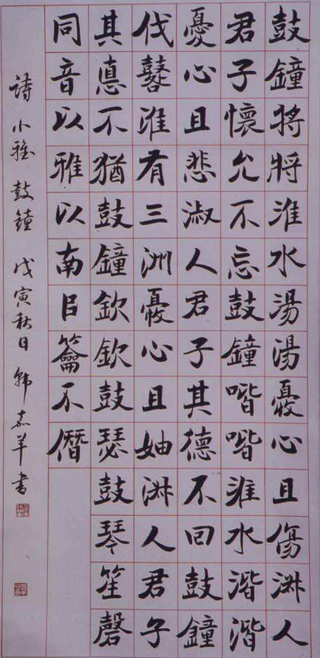 鼓鐘將將淮水湯湯憂心且傷淑人
君子懷允不忘鼓鐘喈喈淮水湝湝
憂心且悲淑人君子其德不回鼓鐘
伐鼛淮有三洲憂心且妯淑人君子
其悳不猶鼓鐘欽欽鼓瑟鼓琴笙磬
同音以雅以南㠯籥不僭
詩小雅鼓鐘戊寅秋日韓嘉羊書